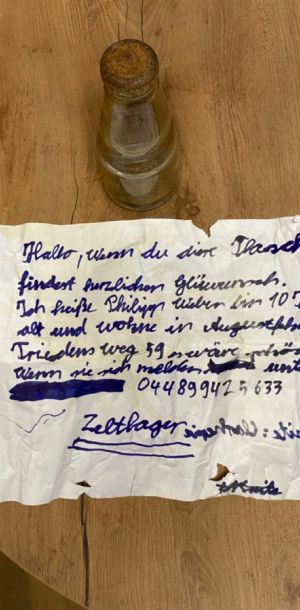 Hallo, wenn du diese Flasch
findest herzlichen Glüwunsch.
Ich heiße Philipp Weben bin 10 J
alt und wohne in Augustfehn
Friedens weg 59 es wäre schön
Wenn sie sich melden. unt
044899425633
Zeltlager